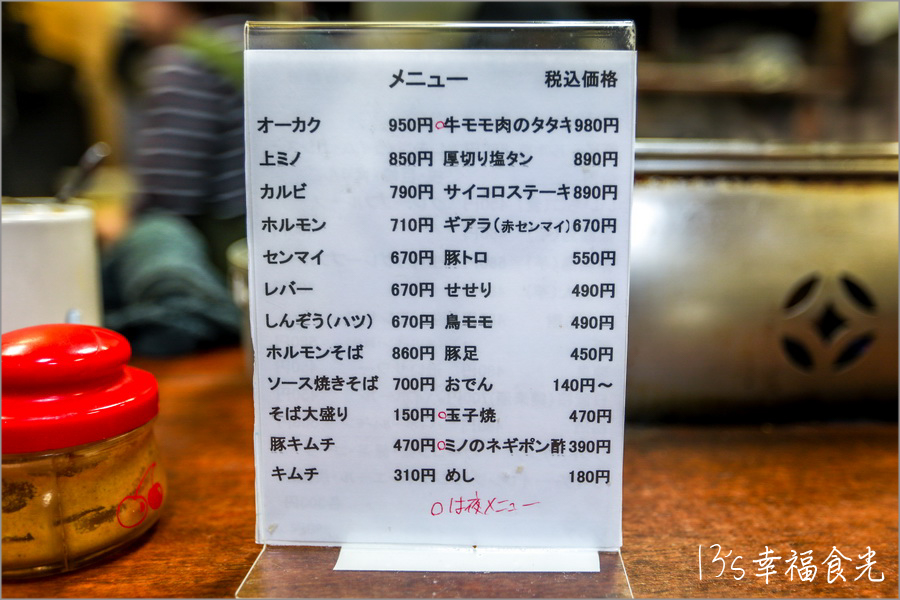 メニュー 税込価格
オーカク 950円 ○牛モモ肉のタタキ 980円
上ミノ 850円 厚切り塩タン 890円
カルビ 790円 サイコロステーキ 890円
ホルモン 710円 ギアラ(赤センマイ) 670円
センマイ 670円 豚トロ 550円
レバー 670円 せせり 490円
しんぞう(ハツ) 670円 鳥モモ 490円
ホルモンそば 860円 豚足 450円
ソース焼きそば 700円 おでん 140円～
そば大盛り 150円 ○玉子焼 470円
豚キムチ 470円 ○ミノのネギポン酢 390円
キムチ 310円 めし 180円
○は夜メニュー
13's幸福食光